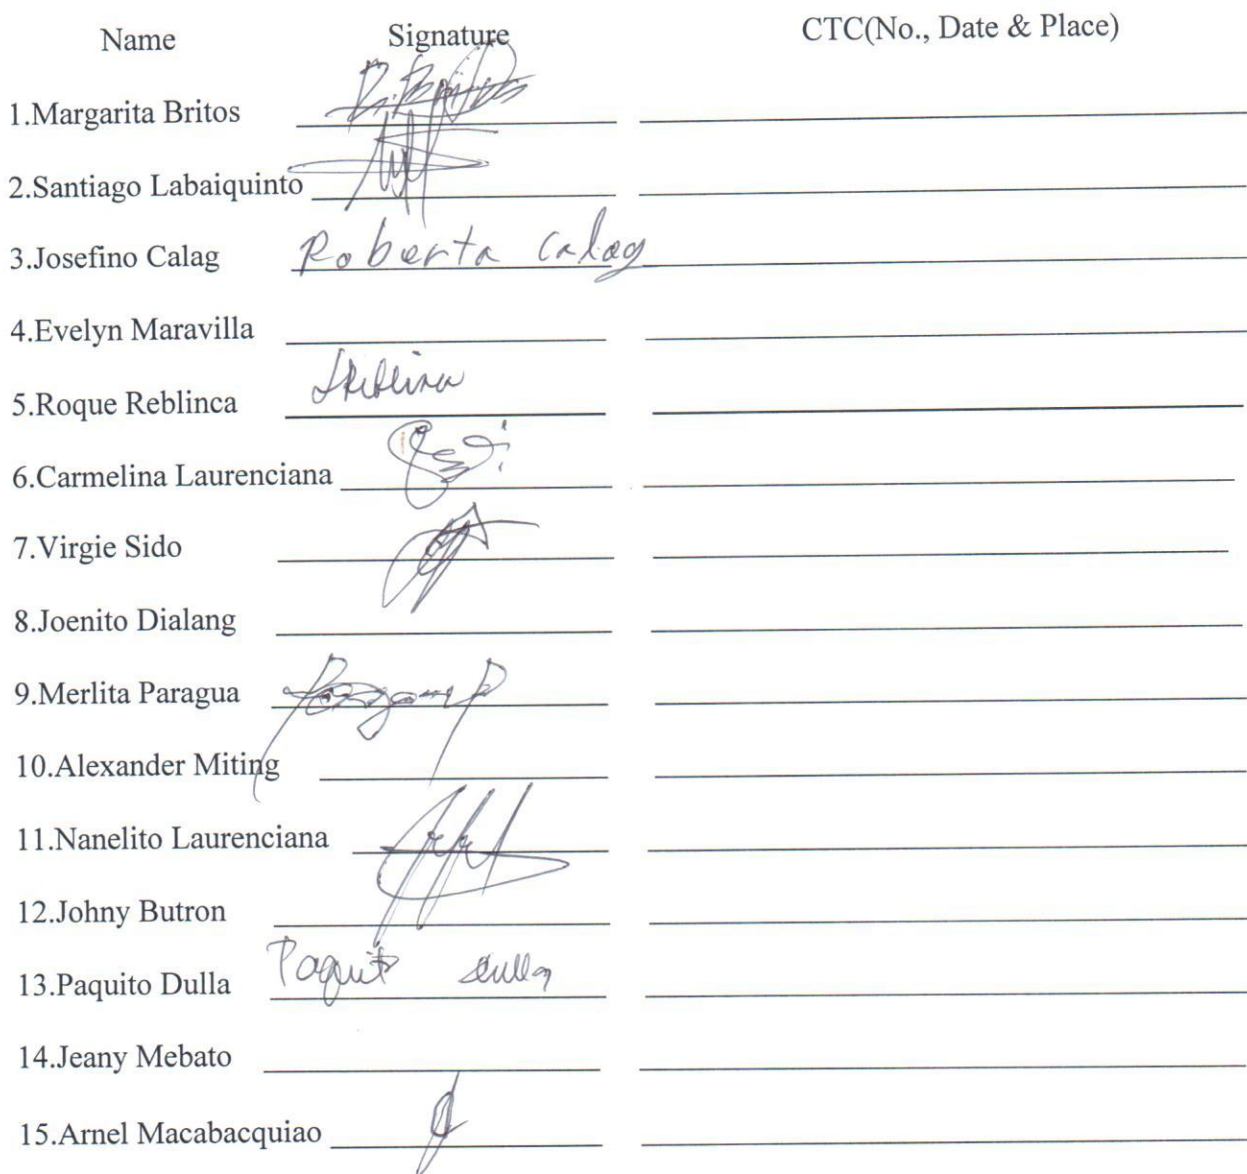 Name Signature CTC(No., Date & Place)
1.Margarita Britos
2.Santiago Labaiquinto
3.Josefino Calag Roberta Calag
4.Evelyn Maravilla
5.Roque Reblinca
6.Carmelina Laurenciana
7.Virgie Sido
8.Joenito Dialang
9.Merlita Paragua
10.Alexander Miting
11.Nanelito Laurenciana
12.Johny Butron
13.Paquito Dulla Paquito dulla
14.Jeany Mebato
15.Arnel Macabacquiao